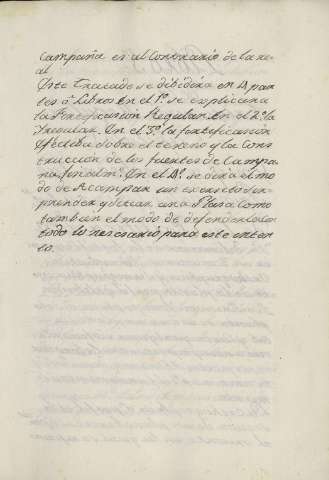 Campaña es al Contrario de la re-
al
Este tratado se dibidira en 4 par-
tes o Libros En el 1º se explicara
la Fortificasion Regular En el 2º la
Yregular. En el 3º la fortificasion
Efectiba sobre el terreno y la Cons-
truccion de los fuertes de Campa-
ña finalm.te En el 4º se dirá el mo-
do de Acampar un exersito em-
prender y sitiar una Plasa como
tambien el modo de defenderla con
todo lo nesesario para este inten-
to.